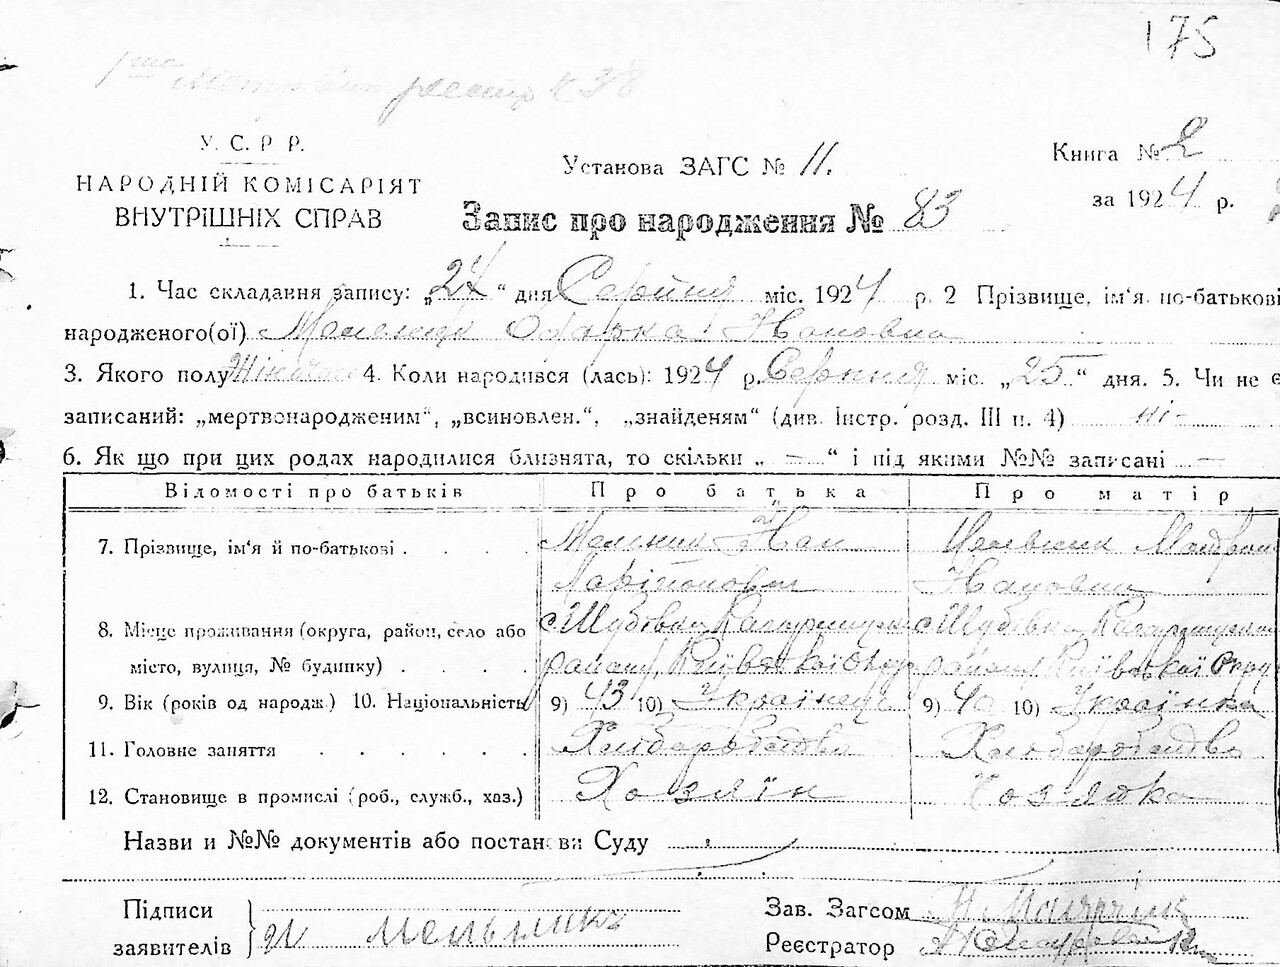 175
У. С. Р Р.
НАРОДНІЙ КОМІСАРІЯТ
ВНУТРІШНІХ СПРАВ
Установа ЗАГС № 11.
Книга № 2
за 1924 р.
Запис про народження № 83
1. Час складання запису: „27“ дня Серпня міс. 1924 р. 2 Прізвище, ім'я по-батькові
народженого(ої) Мельник Одарка Ивановна
3. Якого полу Жіночого 4. Коли народився (лась): 1924 р. Серпня міс. „25“ дня. 5. Чи не є
записаний: „мертвонародженим“, „всиновлен.“, „знайденям“ (див. Інстр. розд. III п. 4) ні-
6. Як що при цих родах народилися близнята, то скільки „ — “ і під якими №№ записані —
Відомості про батьків Про батька Про матір
7. Прізвище, ім'я й по-батькові Мельник Иван Мельник
8. Місце проживання (округа, район, село або с Шубовка с Шубівка
місто, вулиця, № будинку) району, Київської Окру району, Київської Окру
9. Вік (років од народж) 10. Національність 9) 43 10) Українец 9) 40 10) Українка
11. Головне заняття Хліборобство Хліборобство
12. Становище в промислі (роб., служб., хаз.) Хозяїн Хозяйка
Назви и №№ документів або постанови Суду
Підписи
заявителів И Мельникъ
Зав. Загсом
Реєстратор